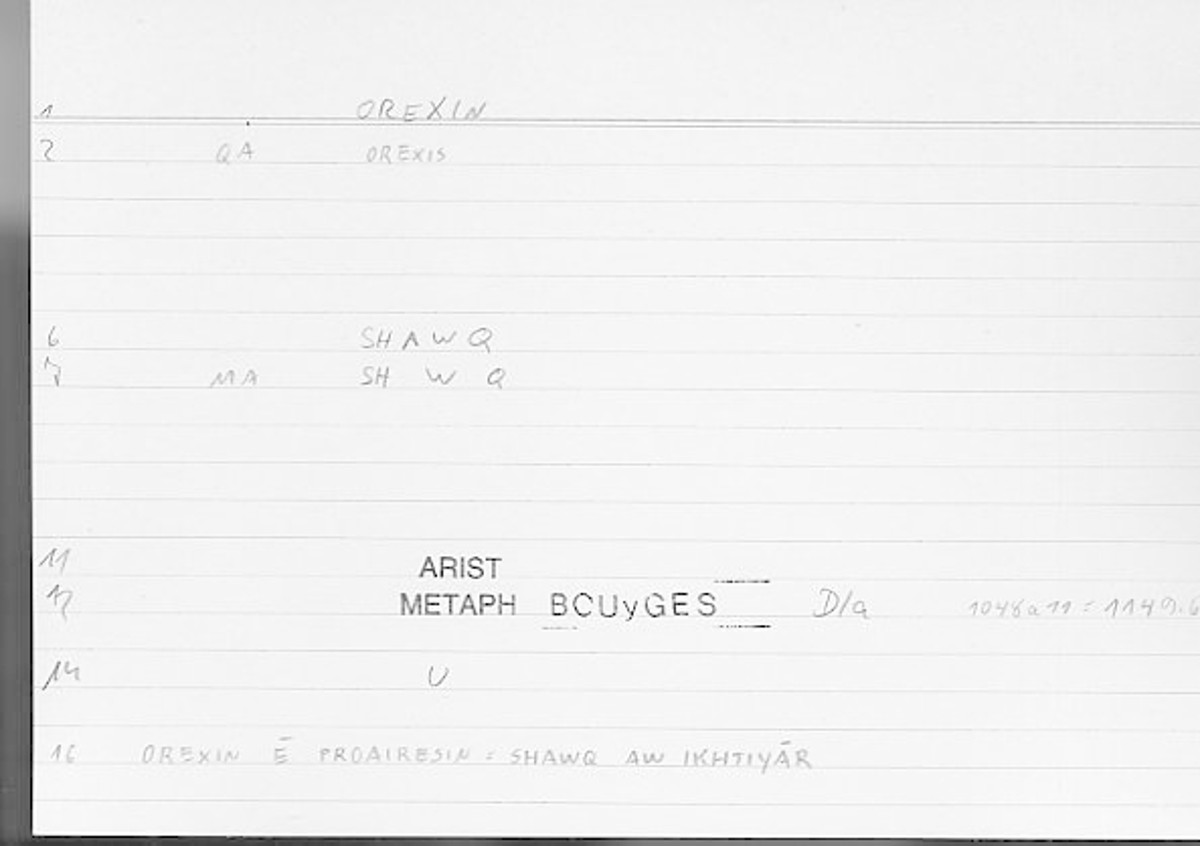 1 OREXIN
2 QA OREXIS
6 SHAWQ
7 MA SH W Q
11 ARIST
12 METAPH BCUyGES D/a 1048a11 = 1149.6
14 U
16 OREXIN Ē PROAIRESIN = SHAWQ AW IKHTIYĀR